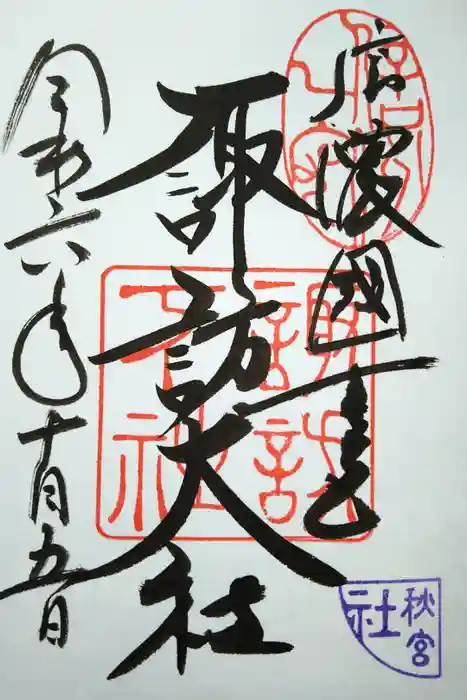 信濃國一之宮
諏訪大社
令和六年十月五日
諏訪
大社
秋宮
社